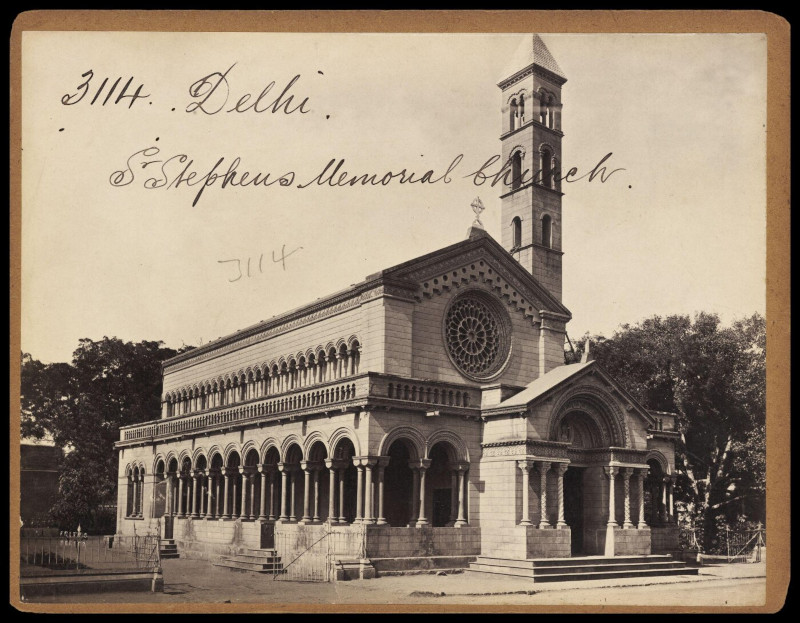 3114. Delhi.
St. Stephens Memorial Church.
3114